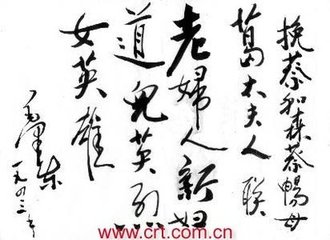 挽蔡和森蔡暢母
葛太夫人 联
老婦人新妇
道兒英烈
女英雄
毛澤东
一九四三年
www.crt.com.cn